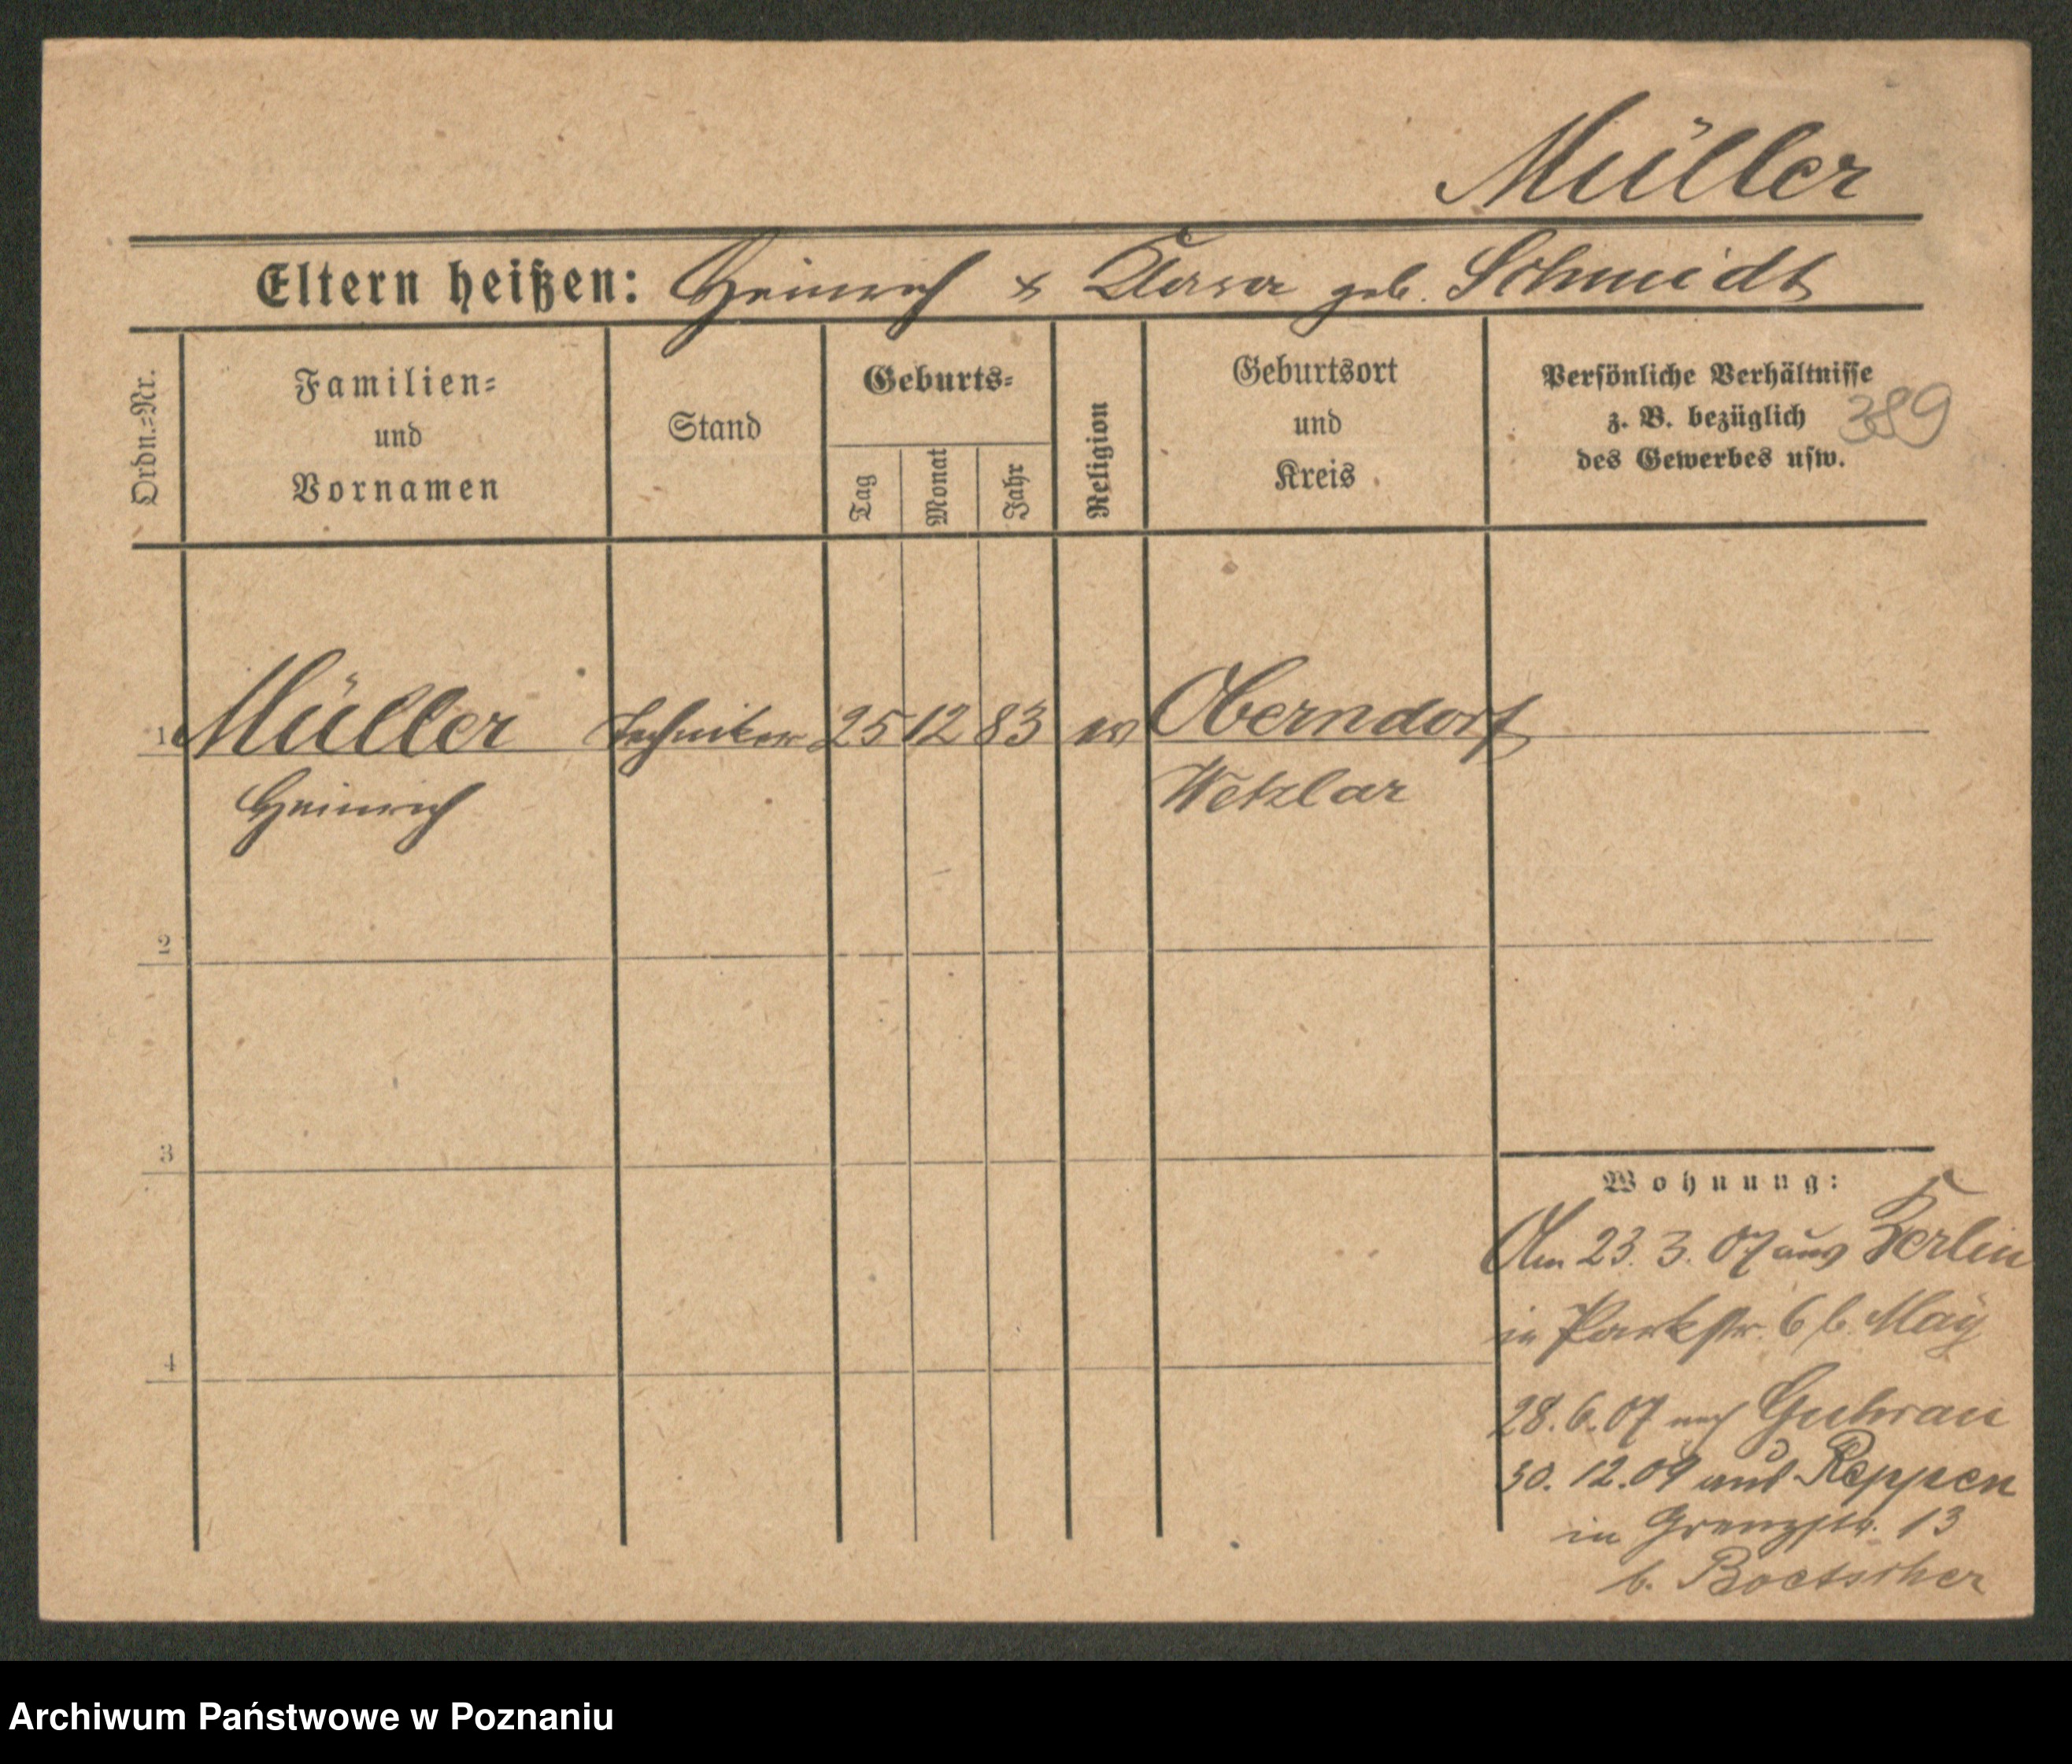 Müller
Eltern heißen: Heinrich & Clara geb. Schmidt
Ordn.=Nr.
Familien=
und
Vornamen
Stand
Geburts=
Tag
Monat
Jahr
Religion
Geburtsort
und
Kreis
Persönliche Verhältnisse
z. B. bezüglich
des Gewerbes usw.
389
1 Müller Techniker 25 12 83 ev Oberndorf
Heinrich Wetzlar
2
3
4
Wohnung:
Am 23. 3. 07 aus Berlin
in Parkstr. 6 b. May
28. 6. 07 nach Guhrau
30. 12. 09 aus Reppen
in Grenzstr. 13
b. Boetscher
Archiwum Państwowe w Poznaniu